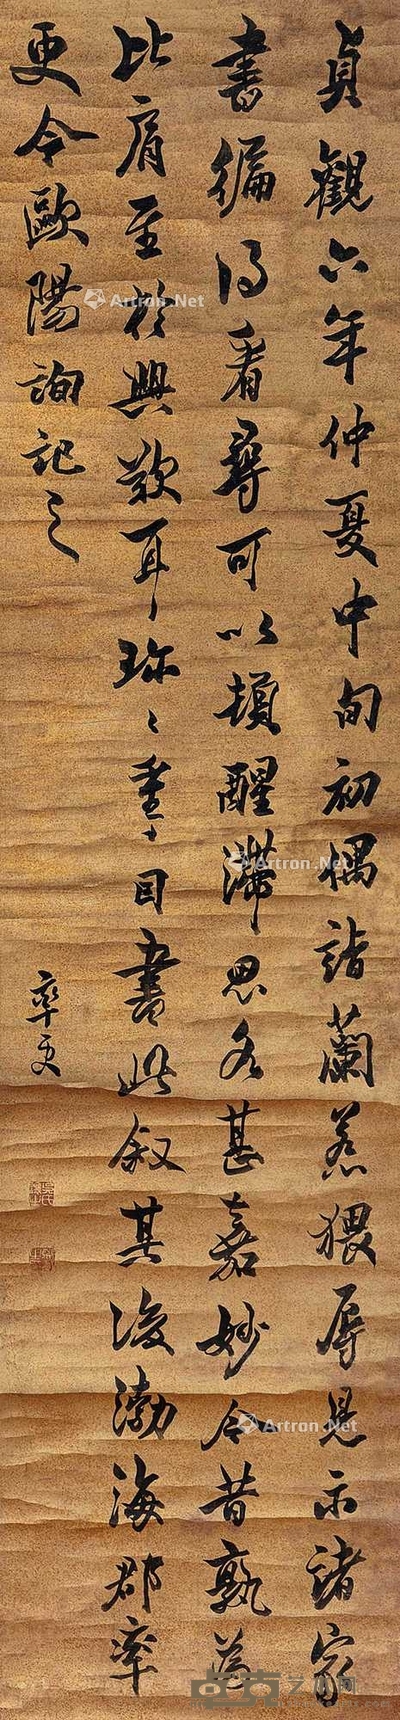 貞觀六年仲夏中旬初偶詣蘭若猥辱見示諸家
書徧得看尋可以頓醒滯思各甚嘉妙今昔孰為
比肩至於興歎耳珎〻重〻因書此叙其後渤海郡率
更令歐陽詢記之
率更
Artron.Net
Artron.Net
Artron.Net